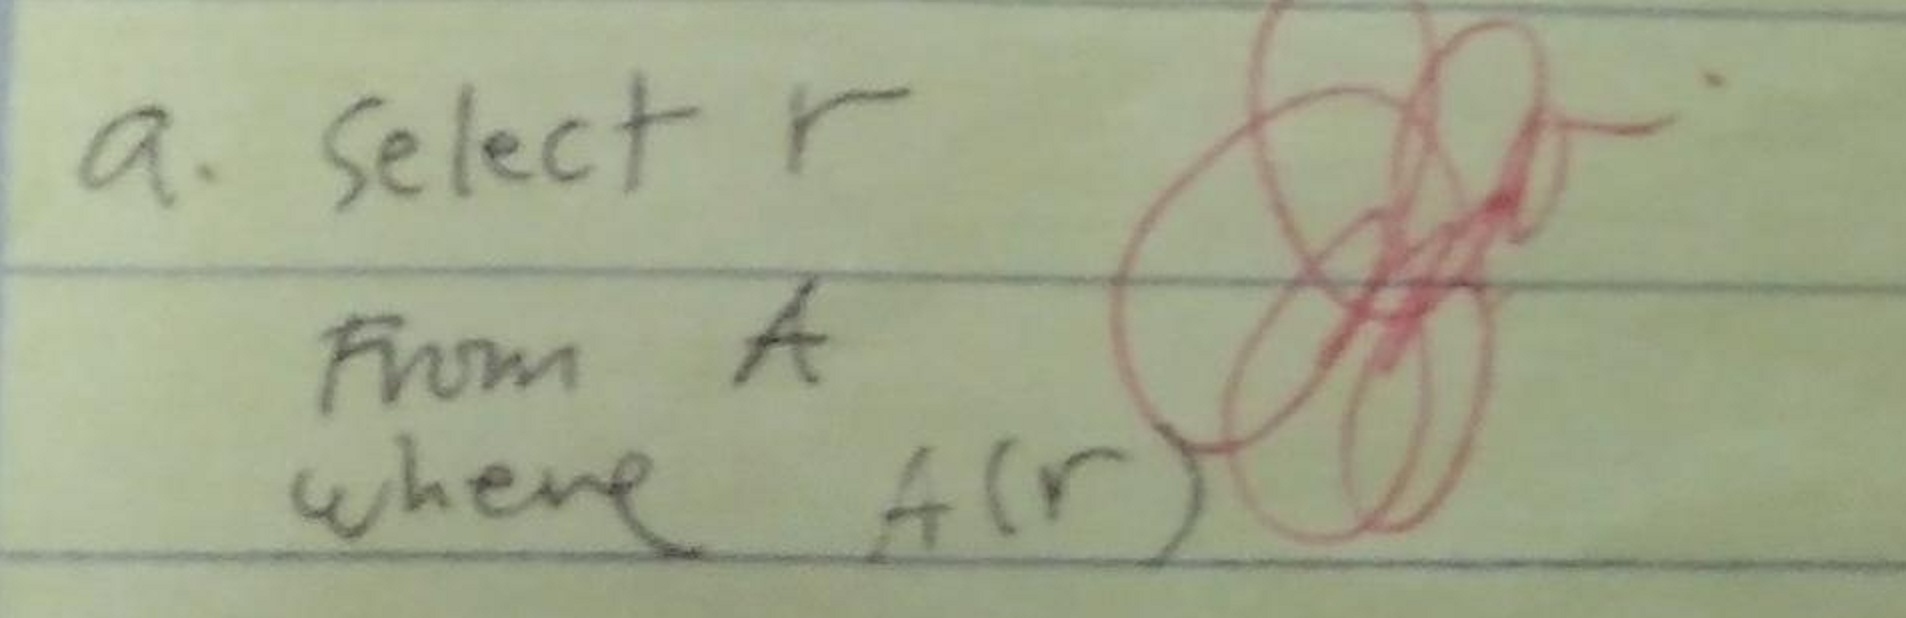 a. select r
From A
where A(r)